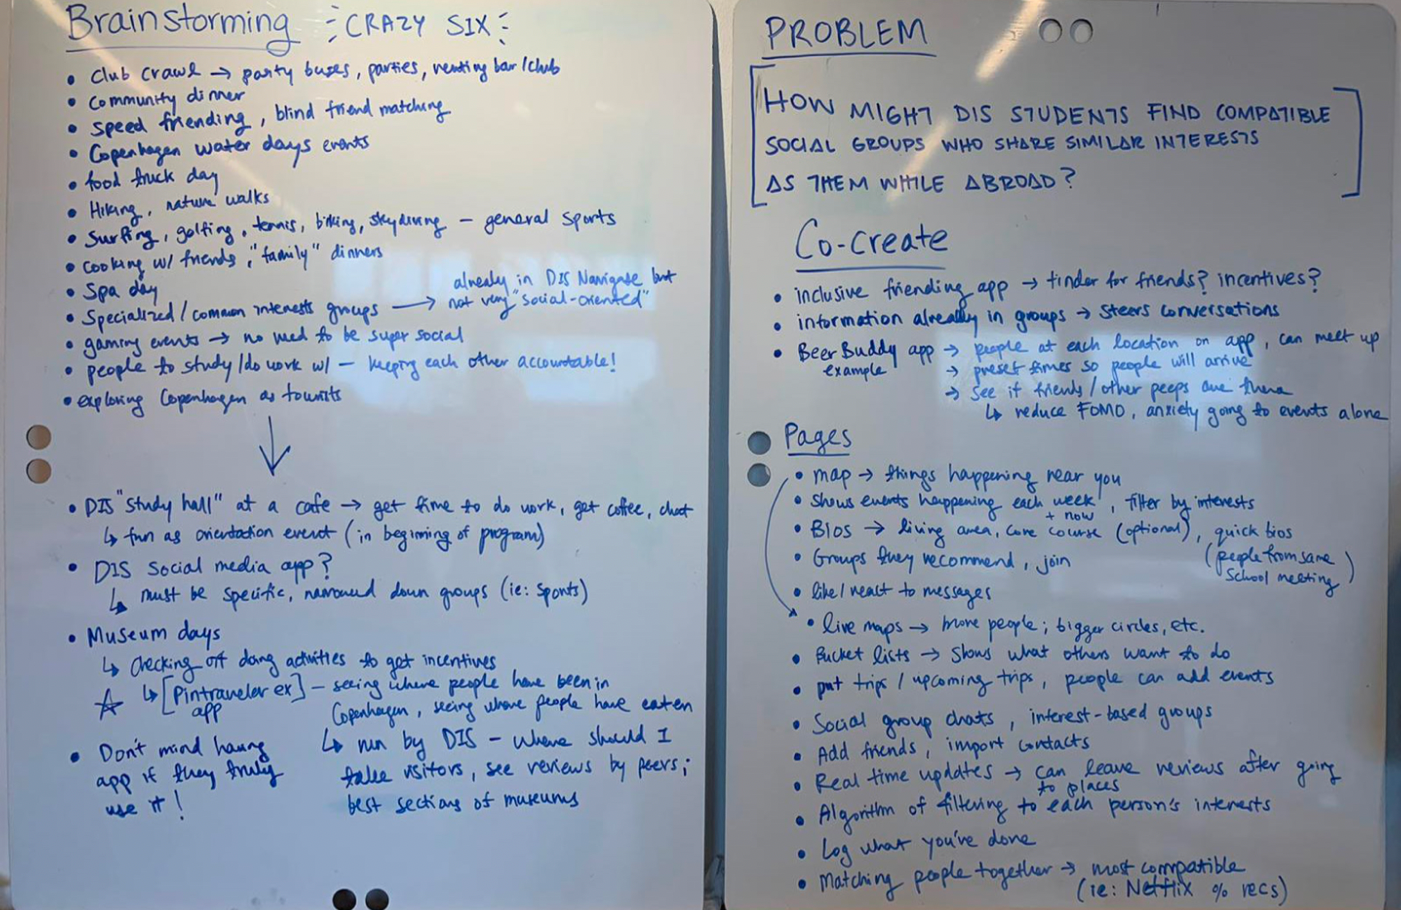 Brainstorming CRAZY SIX
• Club Crawl → party buses, parties, renting bar/club
• Community dinner
• Speed friending, blind friend matching
• Copenhagen water days events
• food truck day
• Hiking, nature walks
• Surfing, golfing, tennis, biking, skydiving – general sports
• Cooking w/ friends, "family" dinners
• Spa day
• Specialized/common interests groups → already in DIS Navigate but
not very "social-oriented"
• gaming events → no need to be super social
• people to study/do work w/ – keeping each other accountable!
• exploring Copenhagen as tourists
• DIS "study hall" at a cafe → get time to do work, get coffee, chat
↳ fun as orientation event (in beginning of program)
• DIS social media app?
↳ must be specific, narrowed down groups (ie: sports)
• Museum days
↳ Checking off doing activities to get incentives
☆ ↳ [Pintraveler ex] – seeing where people have been in
app Copenhagen, seeing where people have eaten
↳ run by DIS – where should I
take visitors, see reviews by peers;
best sections of museums
• Don't mind having
app if they truly
use it!
PROBLEM
[HOW MIGHT DIS STUDENTS FIND COMPATIBLE
SOCIAL GROUPS WHO SHARE SIMILAR INTERESTS
AS THEM WHILE ABROAD?]
Co-create
• inclusive friending app → tinder for friends? incentives?
• information already in groups → steers conversations
• Beer Buddy app → people at each location on app, can meet up
example → preset times so people will arrive
→ see if friends/other peeps are there
↳ reduce FOMO, anxiety going to events alone
Pages
• map → things happening near you
• Shows events happening each week, filter by interests
+ now
• Bios → living area, core course (optional), quick bios
(people from same
school meeting)
• Groups they recommend, join
• like/react to messages
• live maps → more people; bigger circles, etc.
• Bucket lists → shows what others want to do
• put trips/upcoming trips, people can add events
• Social group chats, interest-based groups
• Add friends, import contacts
• Real time updates → can leave reviews after going
to places
• Algorithm of filtering to each person's interests
• Log what you've done
• Matching people together → most compatible
(ie: Netflix % recs)